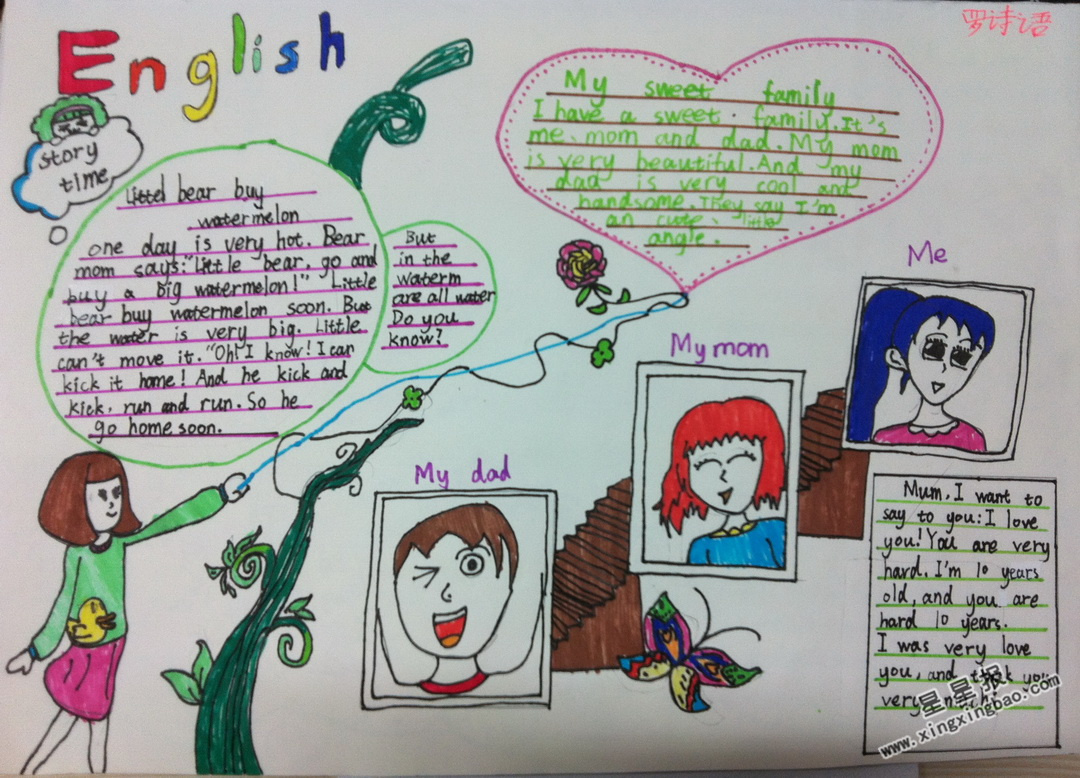 English
罗诗语
story
time
Littel bear buy
watermelon
one day is very hot. Bear
mom says:"Little bear, go and
buy a big watermelon!" Little
bear buy watermelon soon. But
the water is very big. Little
can't move it. "Oh! I know! I can
kick it home! And he kick and
kick, run and run. So he
go home soon.
But
in the
waterm
are all water
Do you
know?
My sweet family
I have a sweet family. It's
me、mom and dad. My mom
is very beautiful. And my
dad is very cool and
handsome. They say I'm
an cute、little
angle.
Me
My mom
My dad
Mum, I want to
say to you: I love
you! You are very
hard, I'm 10 years
old, and you are
hard 10 years.
I was very love
you, and thank you
very much!
星星报
www.xingxingbao.com